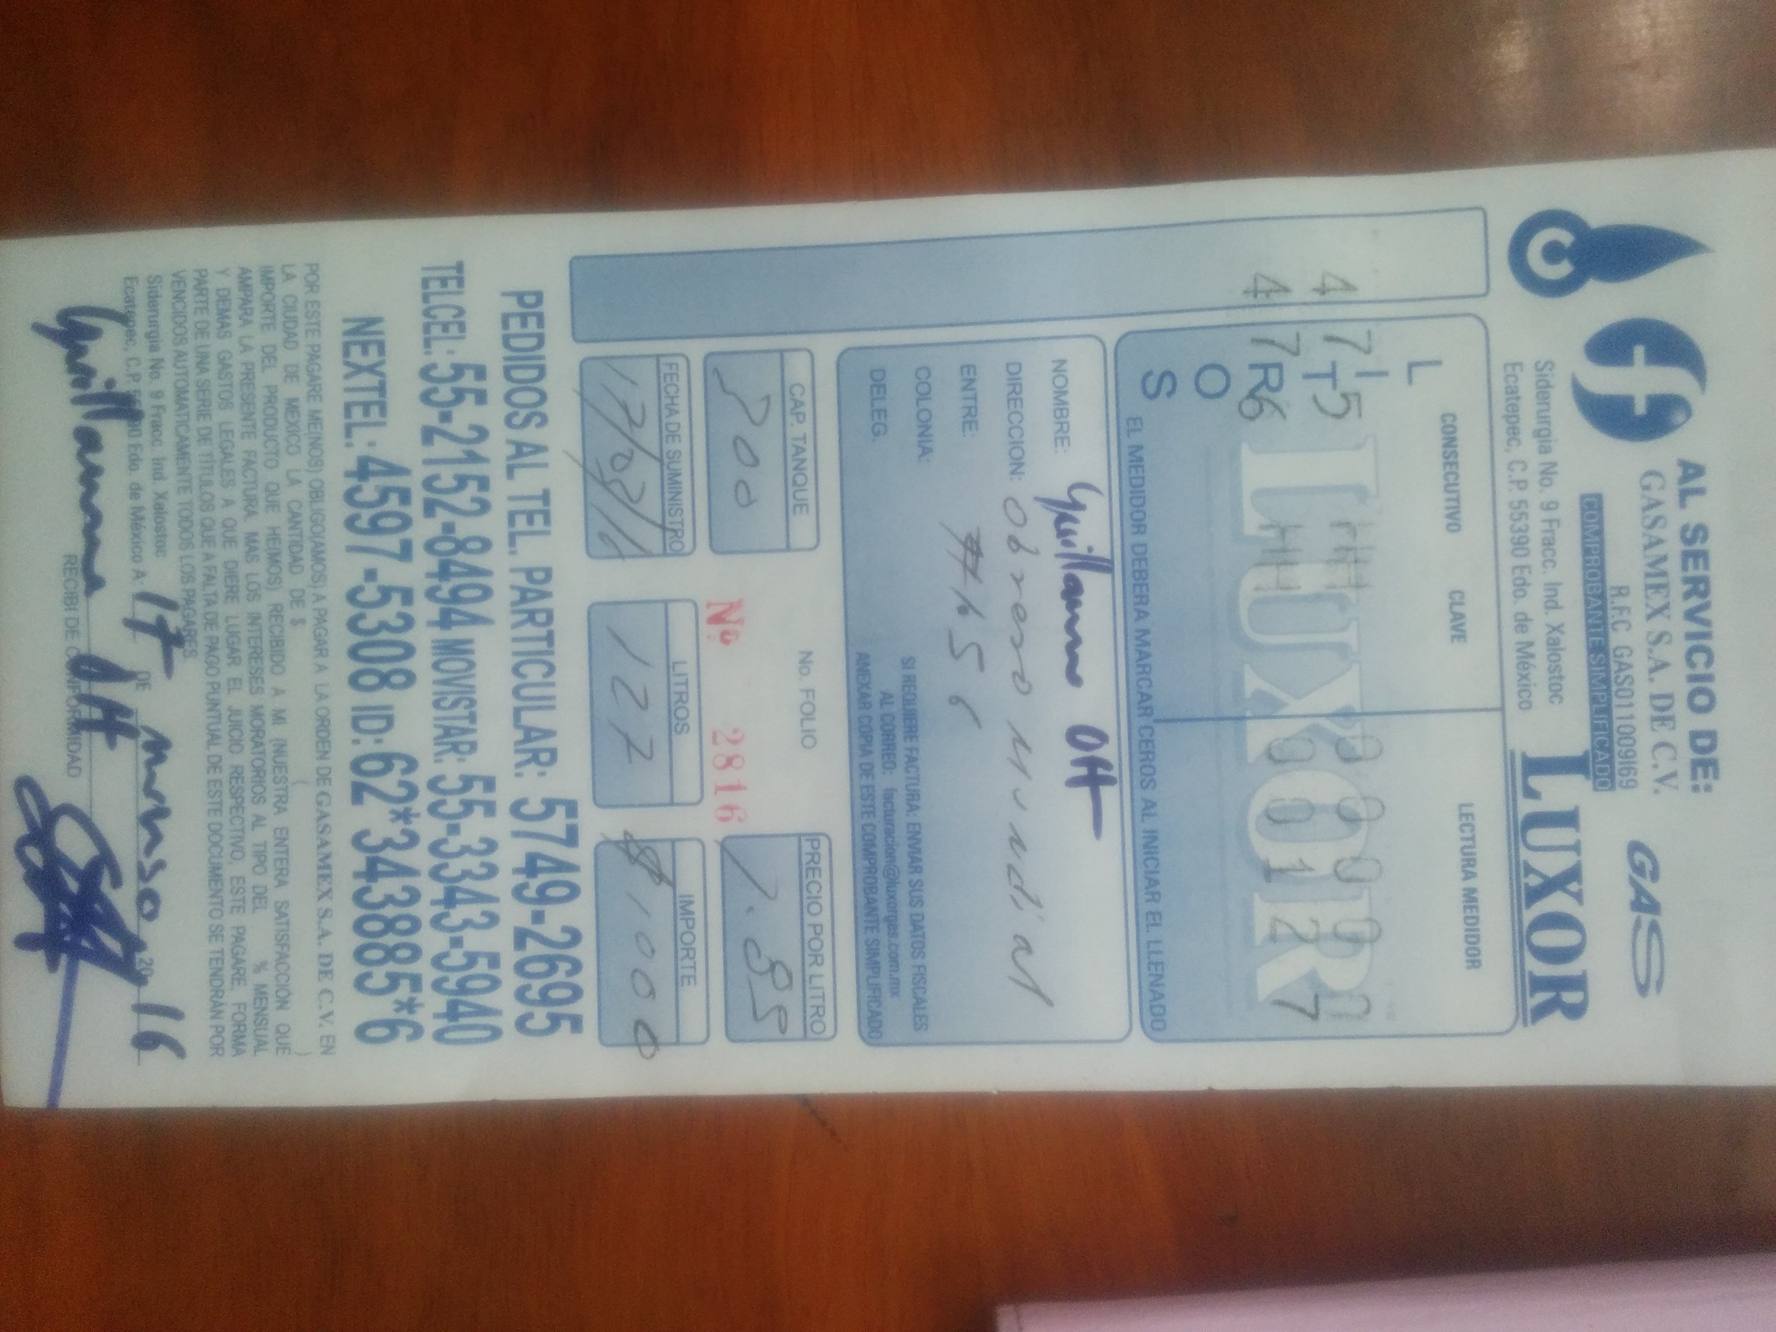 AL SERVICIO DE:
GAS
GASAMEX S.A. DE C.V.
R.F.C GAS011009I69
COMPROBANTE SIMPLIFICADO
LUXOR
Siderurgia No. 9 Fracc. Ind. Xalostoc
Ecatepec, C.P. 55390 Edo. de México
CONSECUTIVO CLAVE LECTURA MEDIDOR
LITROS
LUXOR
4 7 5
4 7 6 0 0 1 2 7
EL MEDIDOR DEBERA MARCAR CEROS AL INICIAR EL LLENADO
NOMBRE: Guillermo OH
DIRECCION: Obrero Mundial
ENTRE: #656
COLONIA:
DELEG.
SI REQUIERE FACTURA: ENVIAR SUS DATOS FISCALES
AL CORREO: facturacion@luxorgas.com.mx
ANEXAR COPIA DE ESTE COMPROBANTE SIMPLIFICADO
CAP. TANQUE No. FOLIO PRECIO POR LITRO
300 Nº 2816 7.85
FECHA DE SUMINISTRO LITROS IMPORTE
127 $1000
PEDIDOS AL TEL. PARTICULAR: 5749-2695
TELCEL: 55-2152-8494 MOVISTAR: 55-3343-5940
NEXTEL: 4597-5308 ID: 62*343885*6
POR ESTE PAGARE ME(NOS) OBLIGO(AMOS) A PAGAR A LA ORDEN DE GASAMEX S.A. DE C.V. EN
LA CIUDAD DE MEXICO LA CANTIDAD DE $ ( )
IMPORTE DEL PRODUCTO QUE HE(MOS) RECIBIDO A MI (NUESTRA ENTERA SATISFACCIÓN QUE
AMPARA LA PRESENTE FACTURA, MAS LOS INTERESES MORATORIOS AL TIPO DEL % MENSUAL
Y DEMAS GASTOS LEGALES A QUE DIERE LUGAR EL JUICIO RESPECTIVO, ESTE PAGARE, FORMA
PARTE DE UNA SERIE DE TÍTULOS QUE A FALTA DE PAGO PUNTUAL DE ESTE DOCUMENTO SE TENDRÁN POR
VENCIDOS AUTOMATICAMENTE TODOS LOS PAGARES.
Siderurgia No. 9 Fracc. Ind. Xalostoc
Ecatepec, C.P. 55390 Edo. de México A 17 DE marzo 2016
Guillermo OH
RECIBI DE CONFORMIDAD